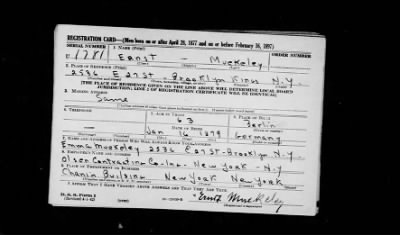 REGISTRATION CARD—(Men born on or after April 28, 1877 and on or before February 16, 1897)
SERIAL NUMBER 1. NAME (Print) ORDER NUMBER
U 1781 Ernst — Muckeley
2. PLACE OF RESIDENCE (Print)
2536 E 27 ST. Brooklyn Kings N.Y.
[THE PLACE OF RESIDENCE GIVEN ON THE LINE ABOVE WILL DETERMINE LOCAL BOARD
JURISDICTION; LINE 2 OF REGISTRATION CERTIFICATE WILL BE IDENTICAL]
3. MAILING ADDRESS
Same
4. TELEPHONE 5. AGE IN YEARS 6. PLACE OF BIRTH
63 Berlin
DATE OF BIRTH
Jan 16 1879 Germany
7. NAME AND ADDRESS OF PERSON WHO WILL ALWAYS KNOW YOUR ADDRESS
Emma Muckeley 2536 E 27 ST-Brooklyn N.Y.
8. EMPLOYER'S NAME AND ADDRESS
Olson Contracting Co-Inc. New York - N.Y
9. PLACE OF EMPLOYMENT OR BUSINESS
Chanin Building New York New York
I AFFIRM THAT I HAVE VERIFIED ABOVE ANSWERS AND THAT THEY ARE TRUE.
D. S. S. Form 1
Ernst Muckeley